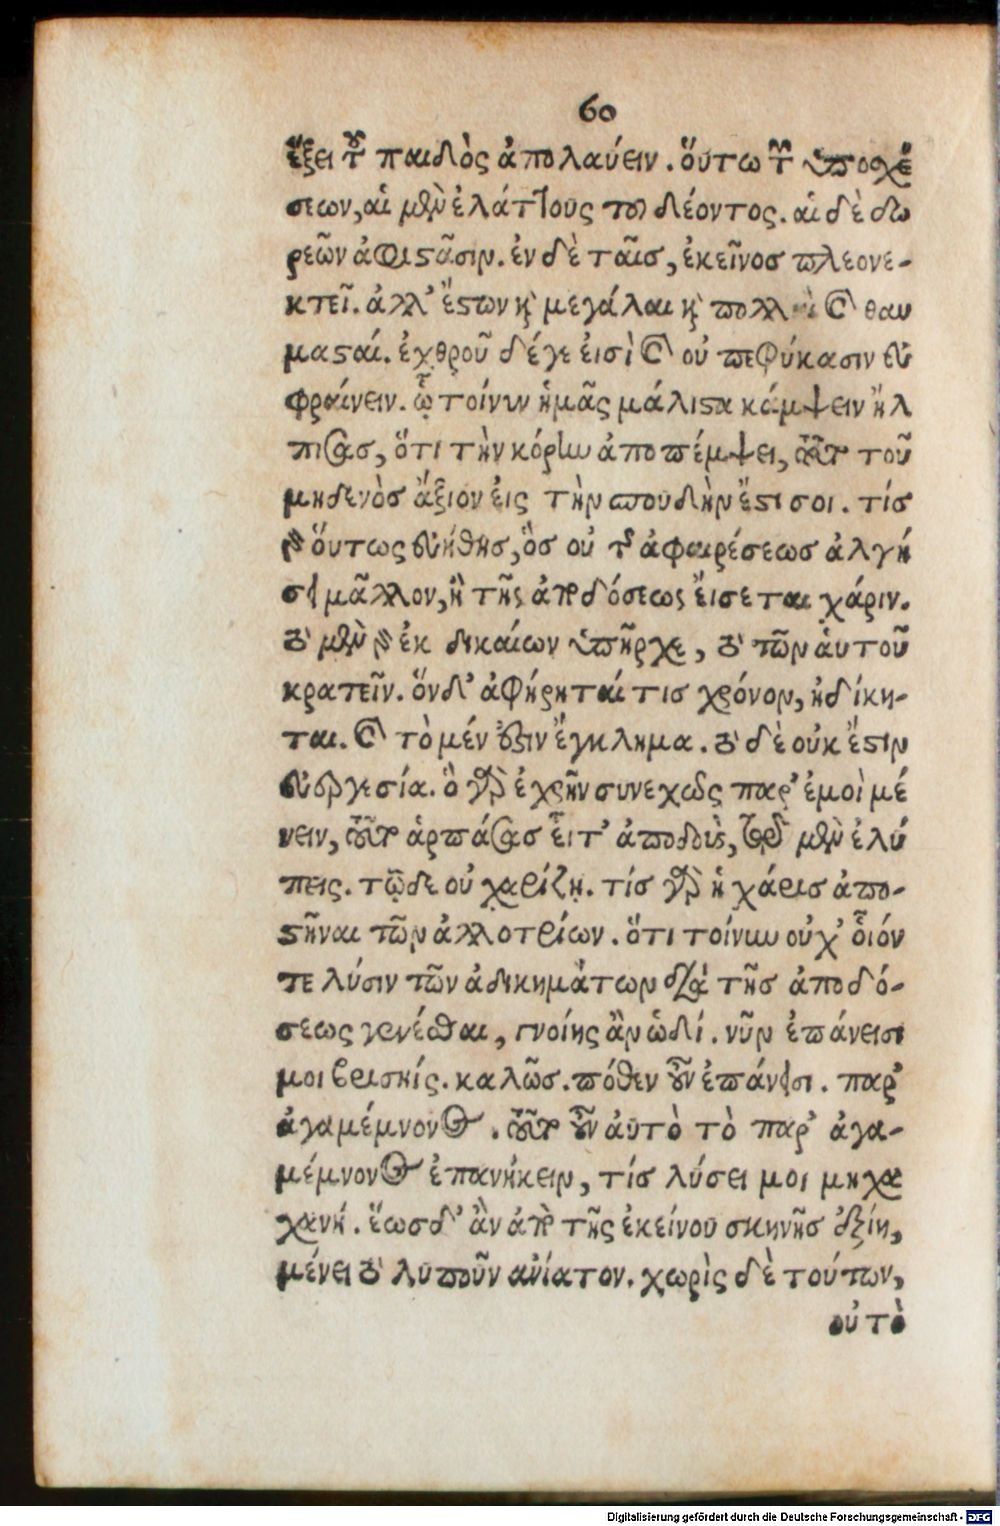 60
ἕξει τοῦ παιδὸς ἀπολαύειν. οὕτω τῶν ὑποσχέ
σεων, αἱ μὲν ἐλάττους τοῦ λέοντος. αἱ δὲ δω
ρεῶν ἀφιστᾶσιν. ἐν δὲ ταῖς, ἐκεῖνος πλεονε-
κτεῖ. ἀλλ' ἔστων καὶ μεγάλαι καὶ πολλαὶ καὶ θαυ
μασταί. ἐχθροῦ δέγε εἰσὶ καὶ οὐ πεφύκασιν εὐ
φραίνειν. ᾧ τοίνυν ἡμᾶς μάλιστα κάμψειν ἤλ
πικας, ὅτι τὴν κόρην ἀποπέμψει, τοῦτο τοῦ
μηδενὸς ἄξιον εἰς τὴν σπουδὴν ἔστι σοι. τίς
γὰρ οὕτως εὐήθης, ὃς οὐ τῆς ἀφαιρέσεως ἀλγή
σει μᾶλλον, ἢ τῆς ἀποδόσεως εἴσεται χάριν.
τὸ μὲν γὰρ ἐκ δικαίων ὑπῆρχε, τὸ τῶν αὑτοῦ
κρατεῖν. ὃν δ' ἀφῄρηταί τις χρόνον, ἠδίκη-
ται. καὶ τὸ μέν ἐστιν ἔγκλημα. τὸ δὲ οὐκ ἔστιν
εὐεργεσία. ὃ γὰρ ἐχρῆν συνεχῶς παρ' ἐμοὶ μέ
νειν, τοῦτο ἁρπάσας εἶτ' ἀποδοὺς, ἐκεῖ μὲν ἐλύ
πεις. τῷδε οὐ χαρίζῃ. τίς γὰρ ἡ χάρις ἀπο-
στῆναι τῶν ἀλλοτρίων. ὅτι τοίνυν οὐχ' οἷόν
τε λύσιν τῶν ἀδικημάτων διὰ τῆς ἀποδό-
σεως γενέσθαι, γνοίης ἂν ὡδί. νῦν ἐπάνεισί
μοι βρισηίς. καλῶς. πόθεν οὖν ἐπάνεισι. παρ'
ἀγαμέμνονος. τοῦτο οὖν αὐτὸ τὸ παρ' ἀγα-
μέμνονος ἐπανήκειν, τίς λύσει μοι μηχα
χανή. ἕως δ' ἂν ἀπὸ τῆς ἐκείνου σκηνῆς ἐξίῃ,
μένει τὸ λυποῦν ἀνίατον. χωρὶς δὲ τούτων,
οὐ τὸ
Digitalisierung gefördert durch die Deutsche Forschungsgemeinschaft - DFG